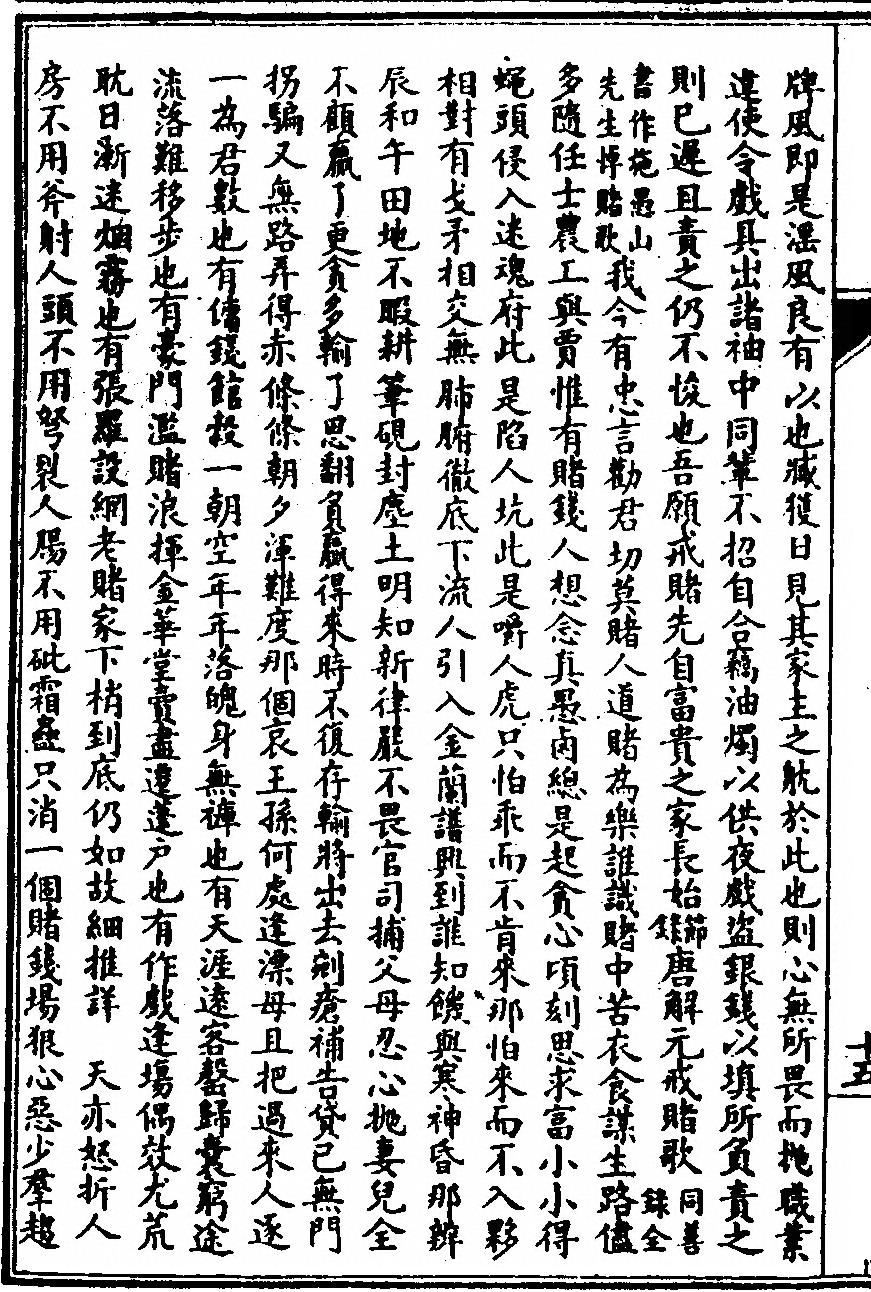 牌風即是淫風良有以也臧獲日見其家主之躭於此也則心無所畏而抛職業
違使令戲具出諸袖中同輩不招自合竊油燭以供夜戲盜銀錢以填所負責之
則已遲且責之仍不悛也吾願戒賭先自富貴之家長始節錄唐解元戒賭歌同善錄全
書作拖愚山先生悼賭歌我今有忠言勸君切莫賭人道賭為樂誰識賭中苦衣食謀生路儘
多隨任士農工與賈惟有賭錢人想念真愚鹵總是起貪心頃刻思求富小小得
蠅頭侵入迷魂府此是陷人坑此是嚼人虎只怕乖而不肯來那怕來而不入夥
相對有戈矛相交無肺腑徹底下流人引入金蘭譜興到誰知饑與寒神昏那辨
辰和午田地不暇耕筆硯封塵土明知新律嚴不畏官司捕父母忍心抛妻兒全
不顧贏了更貪多輸了思翻負贏得來時不復存輸將出去剜瘡補告貸已無門
拐騙又無路弄得赤條條朝夕渾難度那個哀王孫何處逢漂母且把過來人逐
一為君數也有儲錢館穀一朝空年年落魄身無褲也有天涯遠客罄歸囊窮途
流落難移步也有豪門濫賭浪揮金華堂賣盡遷蓬戶也有作戲逢場偶效尤荒
耽日漸迷烟霧也有張羅設網老賭家下梢到底仍如故細推詳　天亦怒折人
房不用斧射人頭不用弩裂人腸不用砒霜蠱只消一個賭錢場狠心惡少羣趨
十五